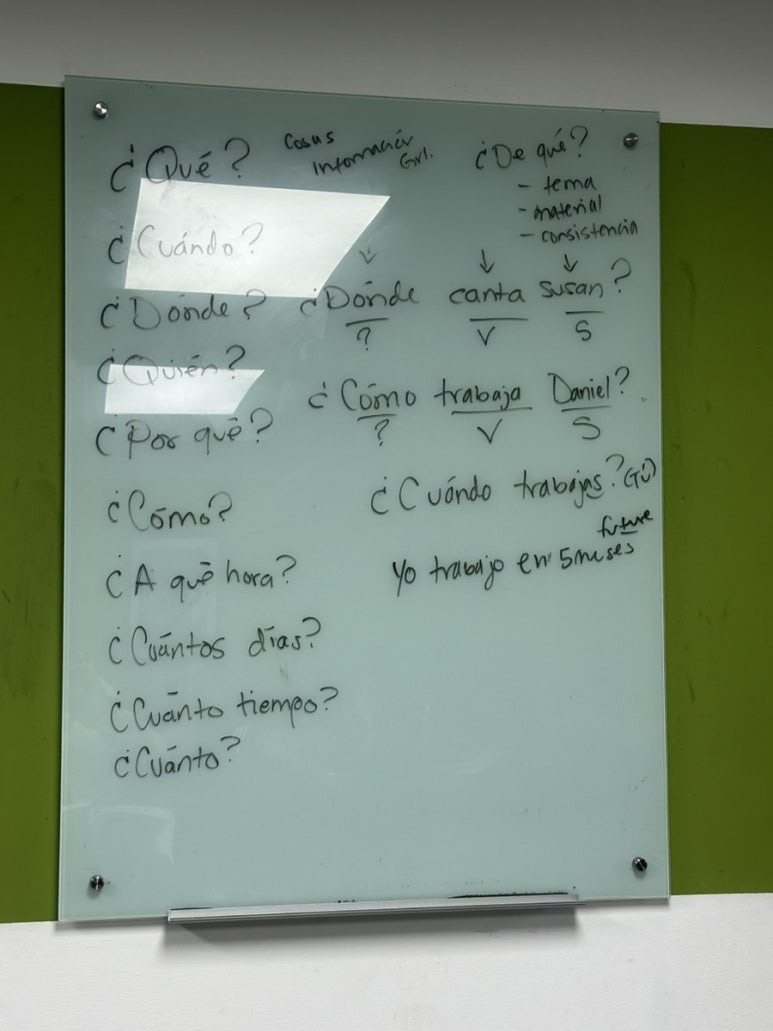 ¿Qué?
Cosas
Información
Grl.
¿De qué?
- tema
- material
- consistencia
¿Cuándo?
¿Dónde?
¿Dónde canta Susan?
? V S
¿Quién?
¿Cómo trabaja Daniel?
? V S
¿Por qué?
¿Cuándo trabajas? (Tú)
¿Cómo?
future
Yo trabajo en 5 meses
¿A qué hora?
¿Cuántos días?
¿Cuánto tiempo?
¿Cuánto?